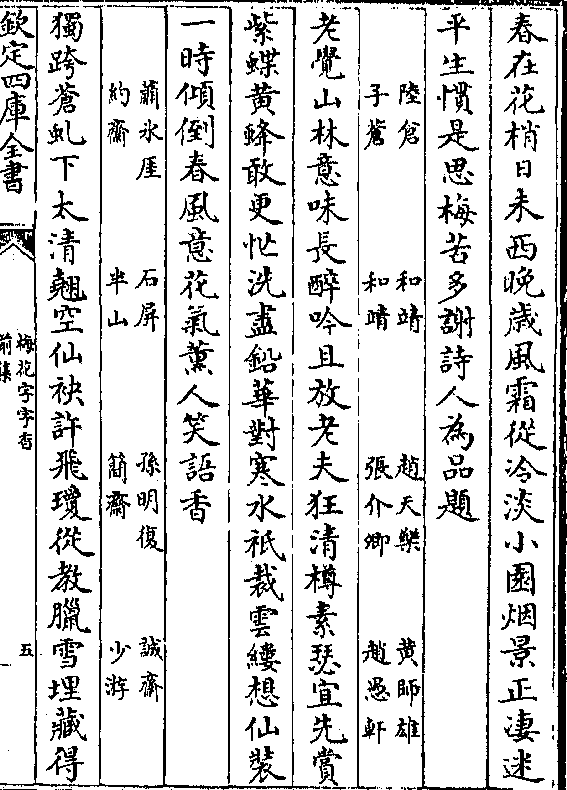 春在花梢日未西晚歳風霜從冷淡小園烟景正凄迷
平生慣是思梅苦多謝詩人為品題
陸倉　和靖　趙天樂　黄師雄
子蒼　和靖　張介卿　趙愚軒
老覺山林意味長醉吟且放老夫狂清樽素瑟宜先賞
紫蝶黄蜂敢更忙洗盡鉛華對寒水祇裁雲縷想仙裝
一時傾倒春風意花氣薰人笑語香
蕭氷厓　石屏　孫明復　誠齋
約齋　半山　簡齋　少游
獨跨蒼虬下太清翹空仙袂許飛瓊從教臘雪埋藏得
欽定四庫全書
梅花字字香
前集
五